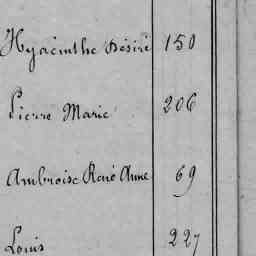 Hyacinthe Désiré 150
Pierre Marie 206
Ambroise René Anne 69
Louis 227